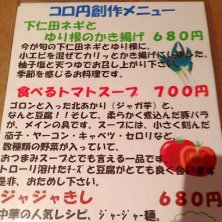 コロ円創作メニュー
下仁田ネギと
ゆり根のかき揚げ 680円
今が旬の下仁田ネギとゆり根に、
小エビを混ぜてカリッとかき揚げにしました。
柚子塩と天つゆでお召し上がり下さい。
季節を感じるお料理です。
食べるトマトスープ 700円
ゴロンと入った北あかり（ジャガ芋）と、
なんと豆腐！！そして、柔らかく煮込んだ豚バラ
が、メインの具です。スープには、小さく刻んだ
茄子・ヤーコン・キャベツ・セロリなど、
数種類の野菜が入っていて、
おつまみスープとでも言える一品です。
トローリ溶けたﾁｰｽﾞと豆腐がとても良く合います
是非、おためし下さい。
ジャジャきし 680円
中華の人気レシピ、ジャージャー麺。